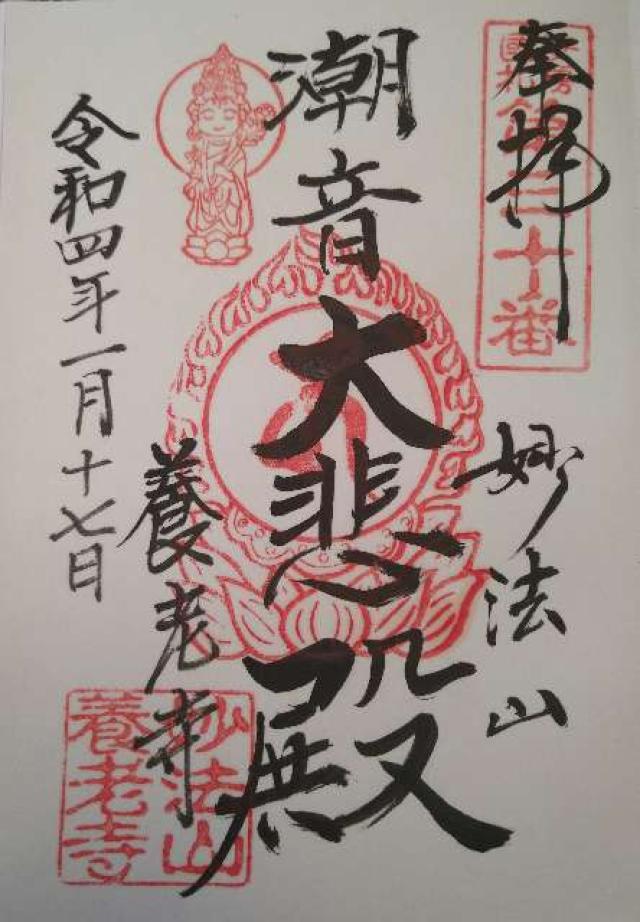 奉拝
第三十番
妙法山
潮音大悲殿
養老寺
令和四年一月十七日
妙法山
養老寺